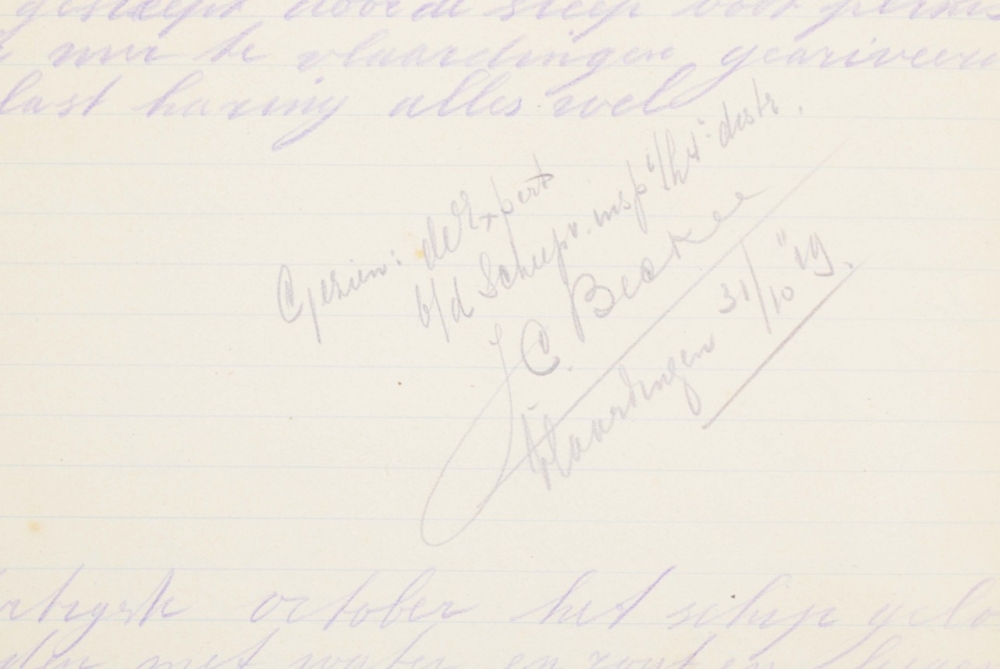 gesleept door de sleep boot
uur te vlaardingen gearriveerd
last haring alles wel
Gezien: de Expert
b/d Scheepv. insp i/h 4e distr.
J C. Bearee
Vlaardingen 31/10 "19.
october het schip gelo
den met water en zout en